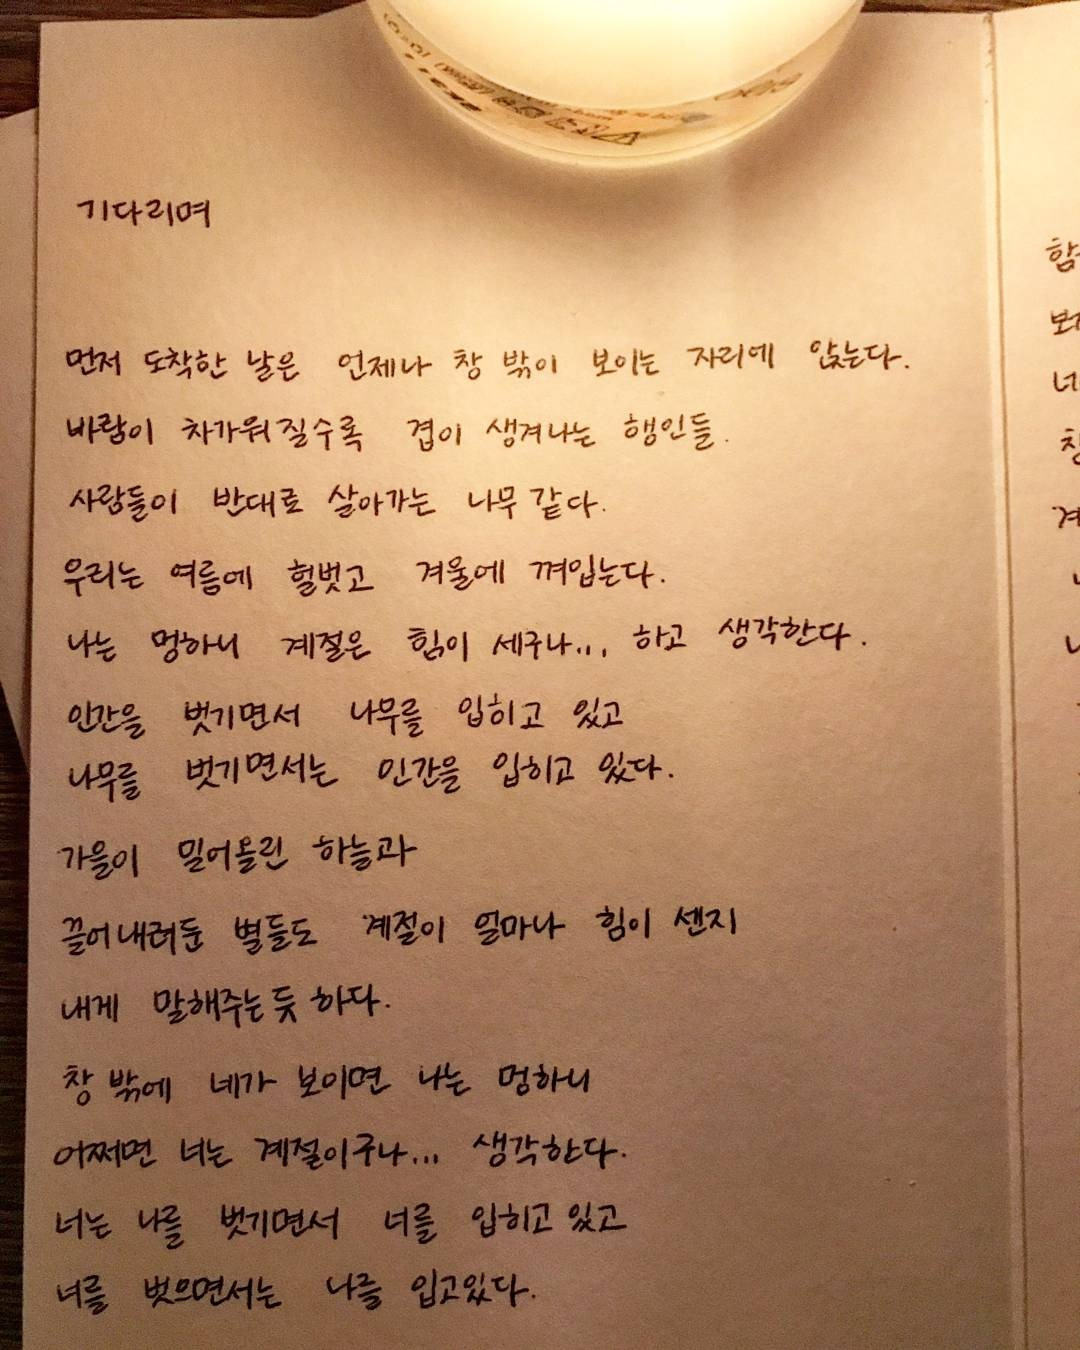 기다리며
먼저 도착한 날은 언제나 창 밖이 보이는 자리에 앉는다.
바람이 차가워질수록 겹이 생겨나는 행인들.
사람들이 반대로 살아가는 나무 같다.
우리는 여름에 헐벗고 겨울에 껴입는다.
나는 멍하니 계절은 힘이 세구나... 하고 생각한다.
인간을 벗기면서 나무를 입히고 있고
나무를 벗기면서는 인간을 입히고 있다.
가을이 밀어올린 하늘과
끌어내려둔 별들도 계절이 얼마나 힘이 센지
내게 말해주는 듯 하다.
창 밖에 네가 보이면 나는 멍하니
어쩌면 너는 계절이구나... 생각한다.
너는 나를 벗기면서 너를 입히고 있고
너를 벗으면서는 나를 입고있다.